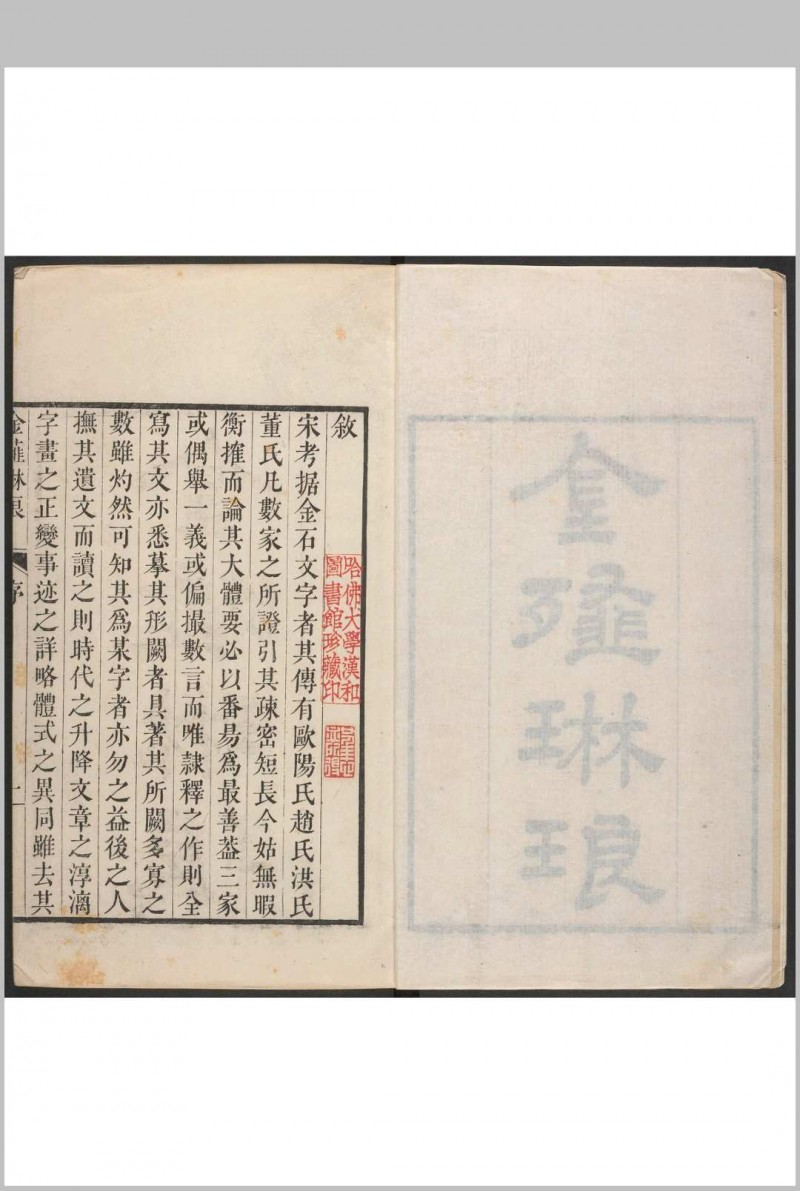 金薤琳琅
敘
哈佛大學漢和
圖書館珍藏印
宋考据金石文字者其傳有歐陽氏趙氏洪氏
董氏凡數家之所證引其疎密短長今姑無暇
衡搉而論其大體要必以番昜爲最善葢三家
或偶舉一義或偏撮數言而唯隷釋之作則全
寫其文亦悉摹其形闕者具著其所闕多寡之
數雖灼然可知其爲某字者亦勿之益後之人
撫其遺文而讀之則時代之升降文章之淳漓
字畫之正變事迹之詳略體式之異同雖去其
金薤琳琅 序 一